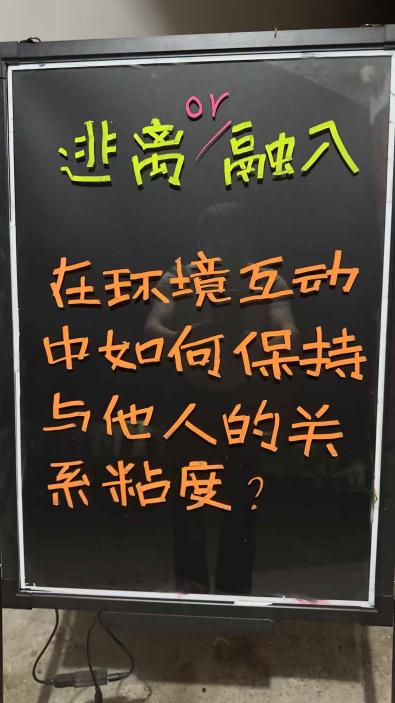 逃离/融入
or
在环境互动
中如何保持
与他人的关
系粘度？